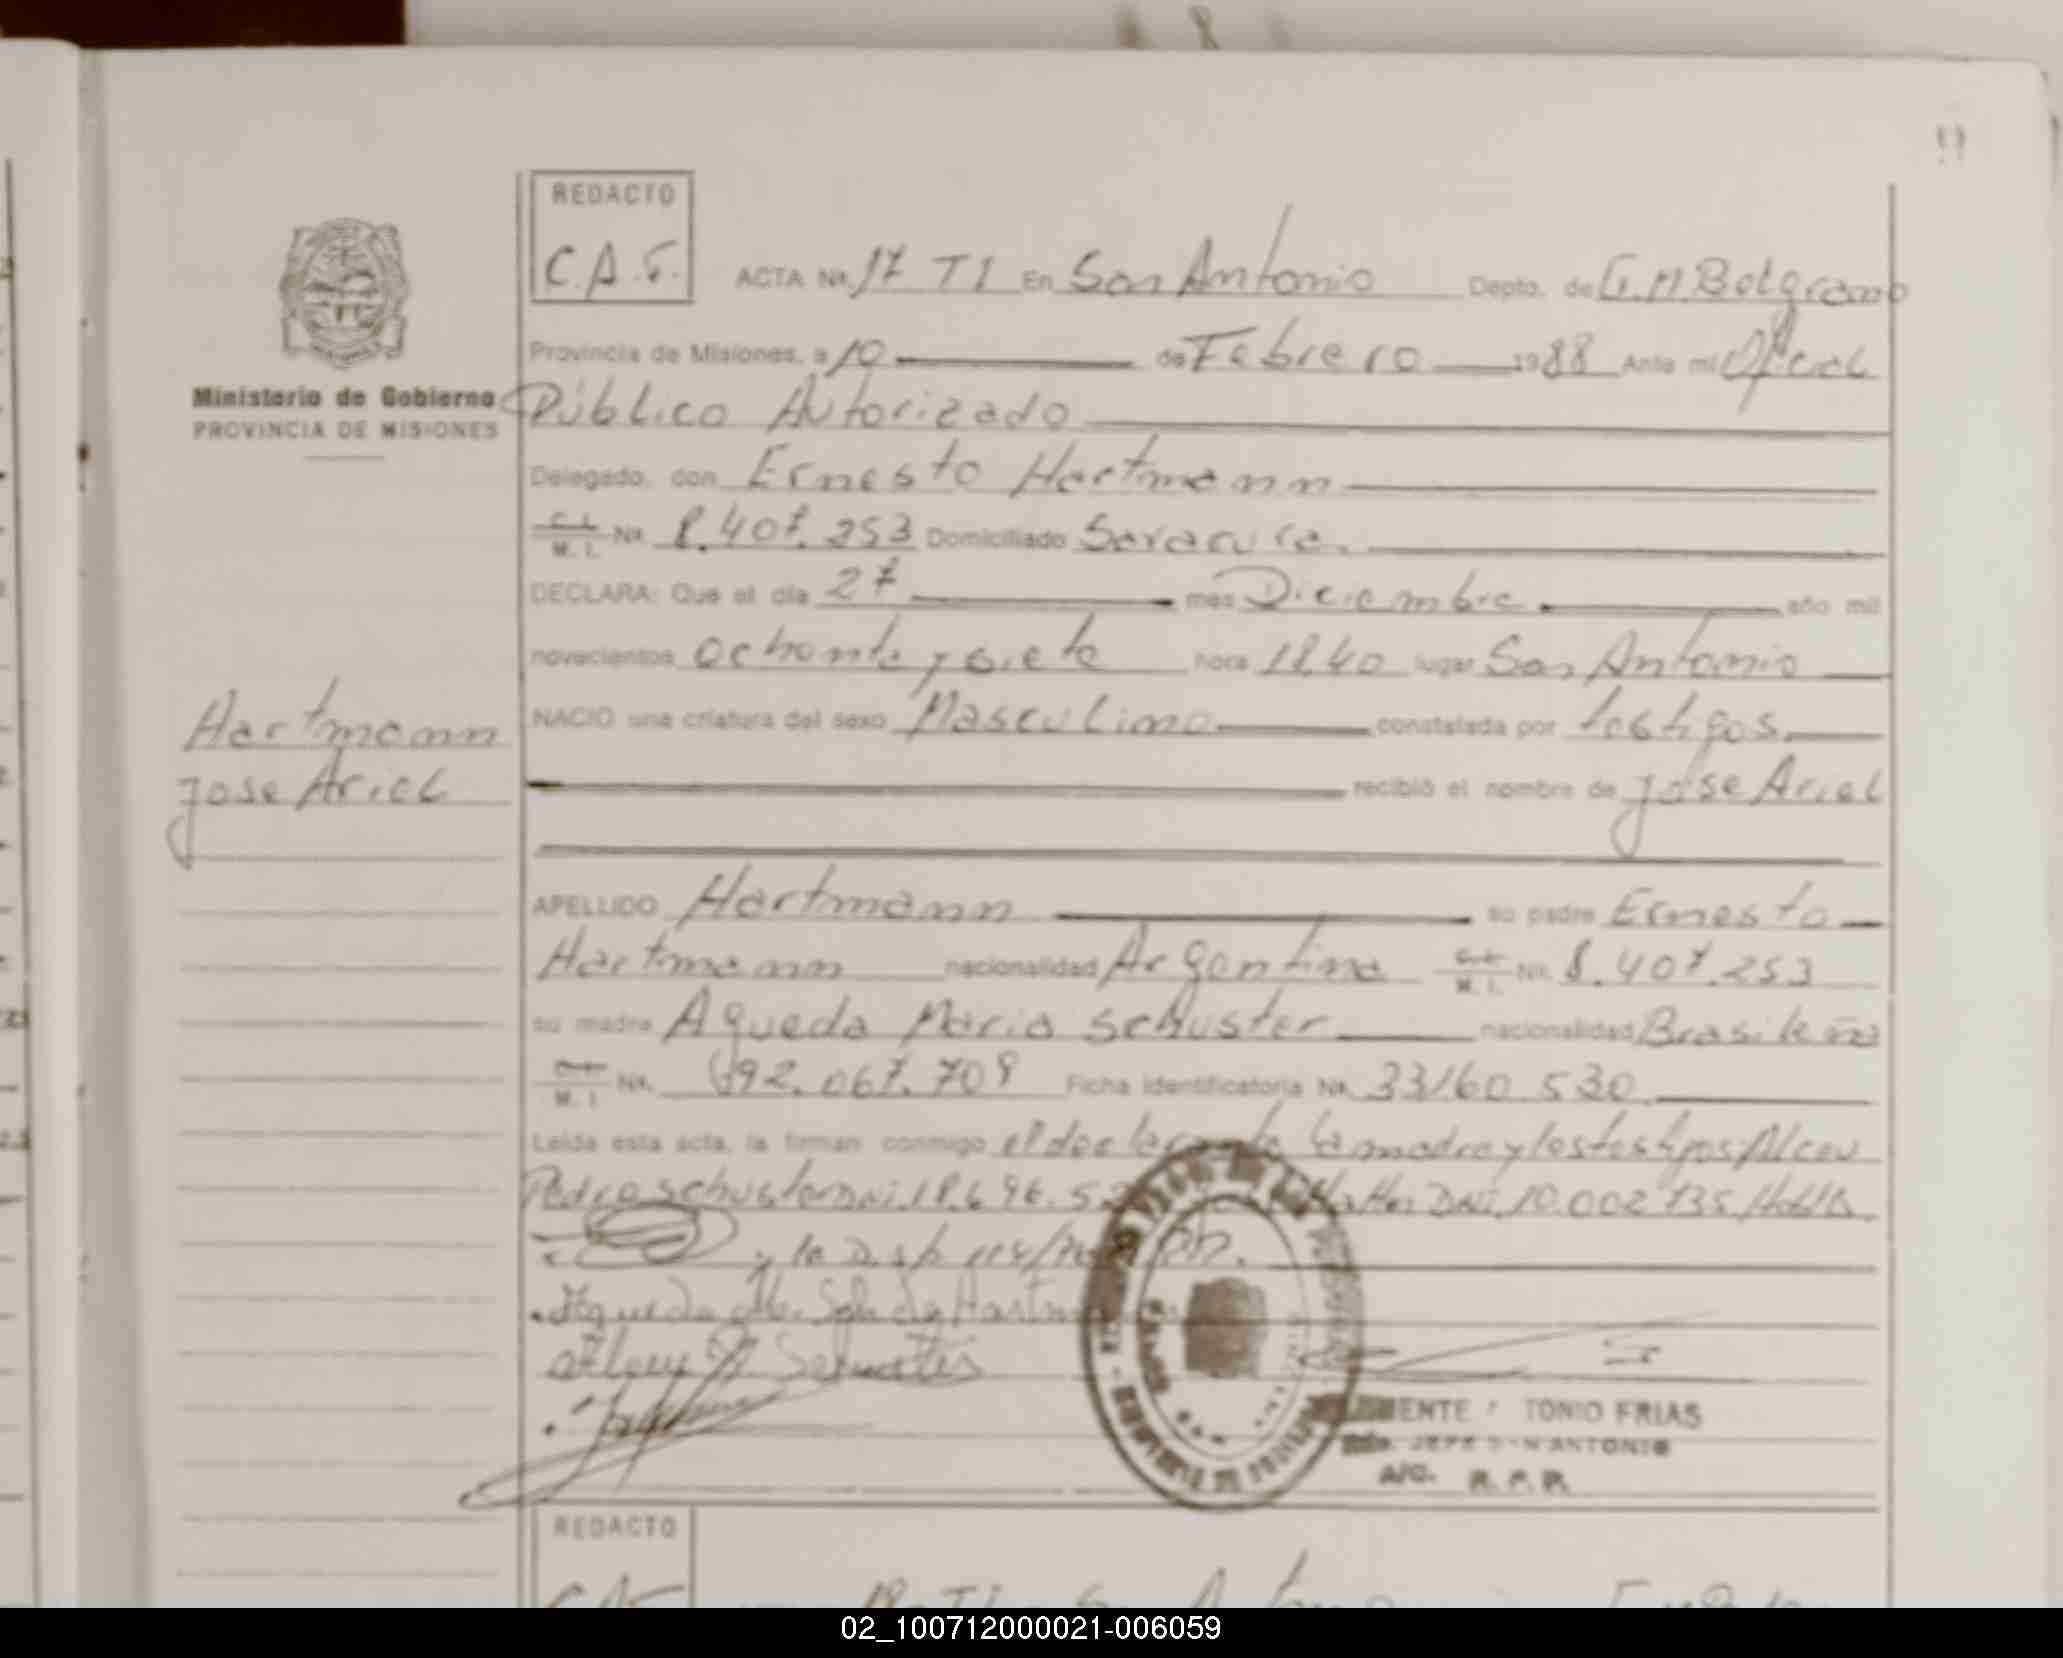 REDACTO
C.A.F.
ACTA Nº 17 TI En San Antonio Depto. de G.M. Belgrano
Provincia de Misiones, a 10 de Febrero 1988 Ante mi Oficial
Ministerio de Gobierno
PROVINCIA DE MISIONES
Público Autorizado
Delegado, don Ernesto Hartmann
C. I. M. I. Nº 8.407.253 Domiciliado Saracura.
DECLARA: Que el día 27 mes Diciembre año mil
novecientos ochenta y siete hora 18.40 lugar San Antonio
NACIO una criatura del sexo Masculino constatada por testigos
recibió el nombre de Jose Ariel
Hartmann
Jose Ariel
APELLIDO Hartmann su padre Ernesto
Hartmann nacionalidad Argentina M. I. Nº 8.407.253
su madre Agueda Maria Schuster nacionalidad Brasileña
M. I. Nº 92.067.709 Ficha Identificatoria Nº 33160530
Leída esta acta, la firman conmigo el declarante la madre y los testigos: Alceu
Pedro Schuster DNI. 18.696.5 DNI. 10.002 735
y la
Agueda Ma. Sch de Hartm
Schuster
ENTE TONIO FRIAS
JEFE SAN ANTONIO
A/C. R. P. P.
REDACTO
02_100712000021-006059